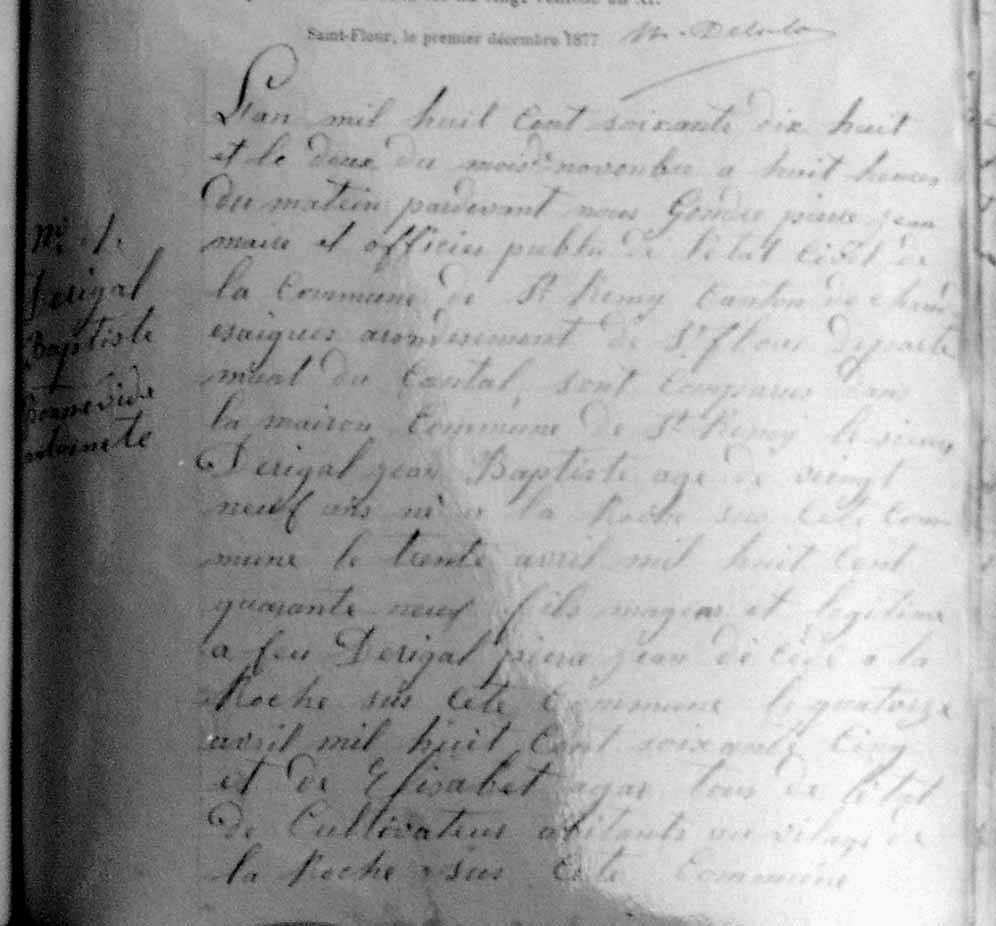 Saint-Flour, le premier décembre 1877
L'an mil huit cent soixante dix huit
et le deux du mois novembre a huit heures
du matein pardevant nous pierre jean
maire et officier public de l'etat civil de
la Commune de St Remy Canton de chaud
esaigues arondisement de St flour departe
ment du Cantal, sont Comparus dans
la maison Commune de St Remy le sieur
Derigal jean Baptiste age de veingt
neuf ans né a la Roche sus cete Com
mune le trente avril mil huit Cent
quarante neuf fils mageur et legitime
a feu Derigal pierre jean dé cédé a la
Roche sus cete Commune le quatorze
avril mil huit Cent soixante Cinq
et de Elisabet agar tous de l'état
de Cultivateur abitants au vilage de
la Roche sus Cete Commune
Derigal
Baptiste